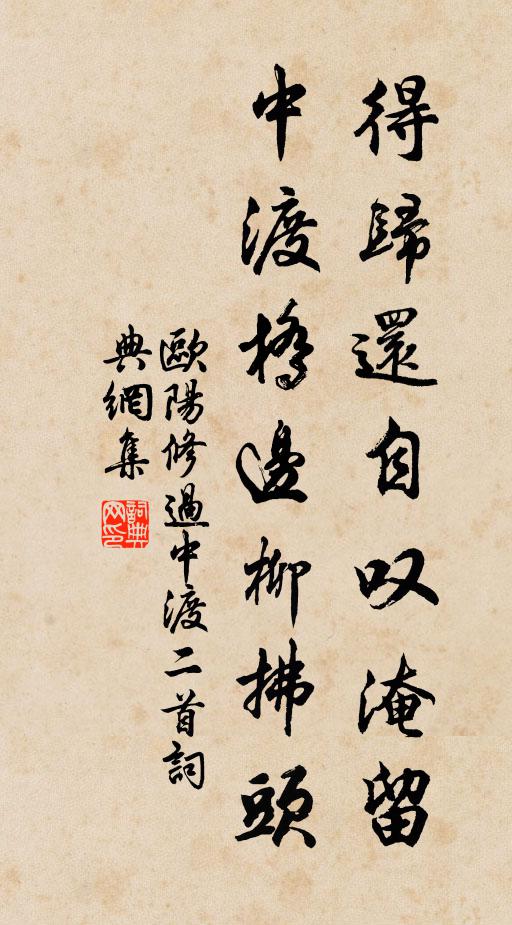 得歸還自叹淹留
中渡橋邊柳拂頭
歐陽修過中渡二首詞
典網集
詞典
网印